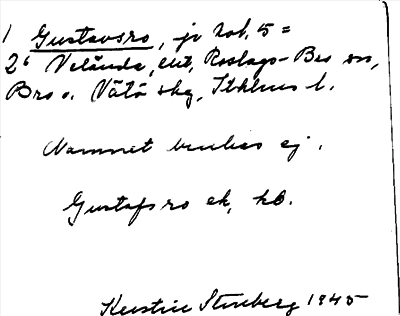 1 Gustavsro, jr kol. 5 =
2⁶ Velånda, enl. Roslags-Bro sn,
Bro o. Vätö skg, Sthlms l.
Namnet brukas ej.
Gustafsro ek. kb.
Kerstin Stenberg 1945